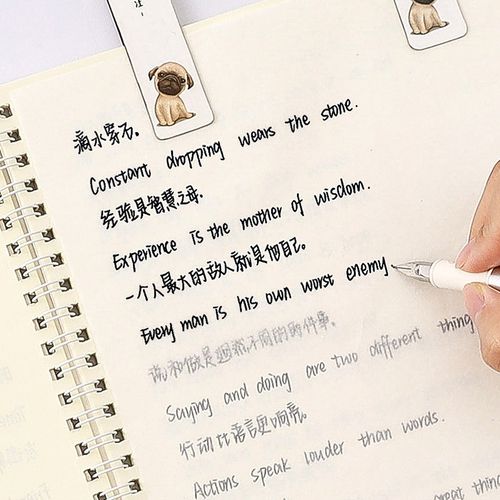 滴水穿石。
Constant dropping wears the stone.
经验是智慧之母.
Experience is the mother of wisdom.
一个人最大的敌人就是他自己。
Every man is his own worst enemy.
说和做是迥然不同的两件事。
Saying and doing are two different thing
行动比语言更响亮.
Actions speak louder than words.
great thin